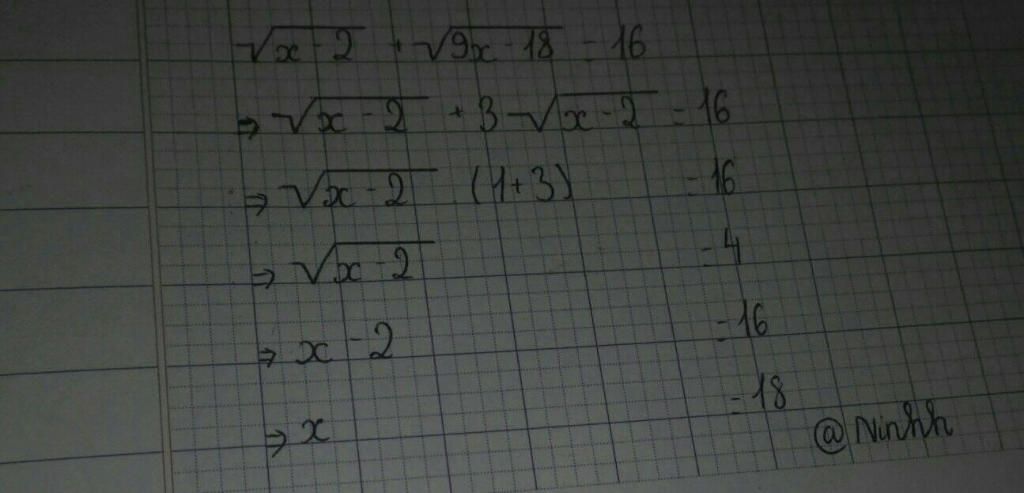 √(x - 2) + √(9x - 18) = 16
⇒ √(x - 2) + 3√(x - 2) = 16
⇒ √(x - 2) (1+3) = 16
⇒ √(x - 2) = 4
⇒ x - 2 = 16
⇒ x = 18
@Ninhh